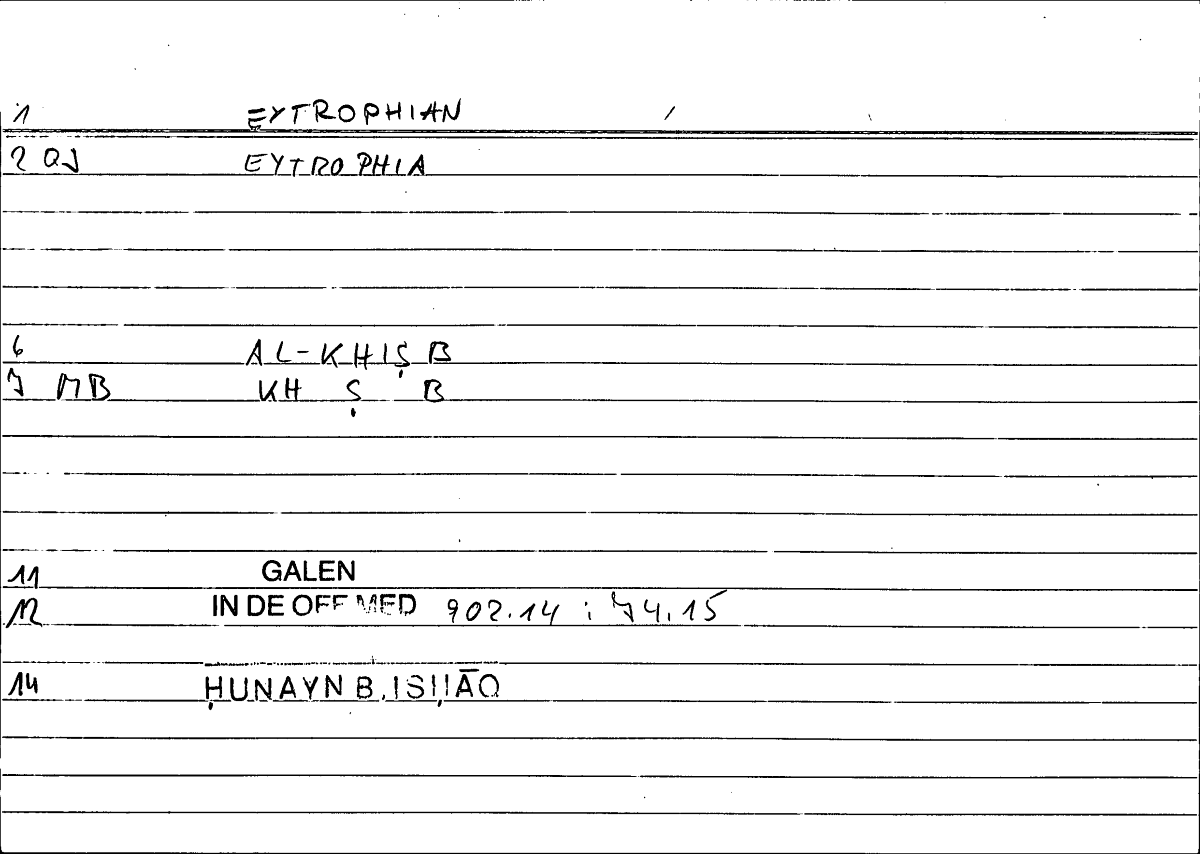 1 EYTROPHIAN /
2 QJ EYTROPHIA
6 AL-KHIṢB
7 MB KH Ṣ B
11 GALEN
12 IN DE OFF MED 902.14 : 74.15
14 ḤUNAYN B. ISḤĀQ